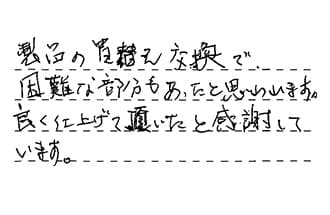 製品の見積も交換で、
困難な部分もあったと思います。
良く仕上げて頂いたと感謝して
います。